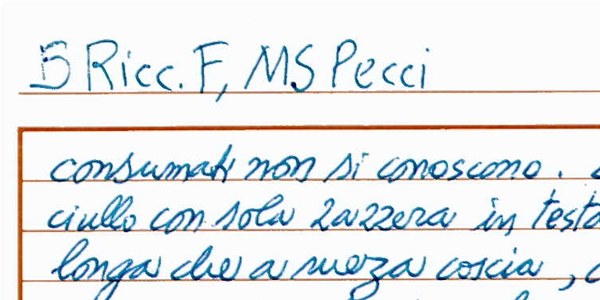 5 Ricc. F, MS Pecci
consumati non si conoscono.
ciullo con sola zazzera in testa
longa che a meza coscia,